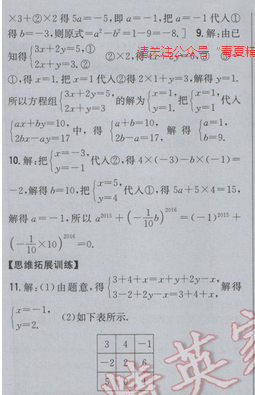 ×3+②×2得5a=-5,即a=-1.把a=-1代入①
得b=-3,则原式=a²-b²=1-9=-8.] 9.解:由已
知得{3x+2y=5,① 2x+y=3.② ②×2,得4x+2y=6,③
①,得x=1.把x=1代入②得2×1+y=3,解得y=1.
所以方程组{3x+2y=5, 2x+y=3 的解为{x=1, y=1. 把{x=1, y=1 代入
{ax+by=10, 2bx-ay=17 中,得{a+b=10, 2b-a=17, 解得{a=1, b=9.
10.解:把{x=-3, y=-1 代入②,得4×(-3)-b×(-1)=
-2,解得b=10,把{x=5, y=4 代入①,得5a+5×4=15,
解得a=-1,所以a²⁰¹⁵+(-1/10 b)²⁰¹⁶=(-1)²⁰¹⁵+
(-1/10×10)²⁰¹⁶=0.
【思维拓展训练】
11.解:(1)由题意,得{3+4+x=x+y+2y-x, 3-2+2y-x=3+4+x, 解得
{x=-1, y=2. (2)如下表所示.
3 4 -1
-2 2 6
5 0 1
请关注公众号
精英家